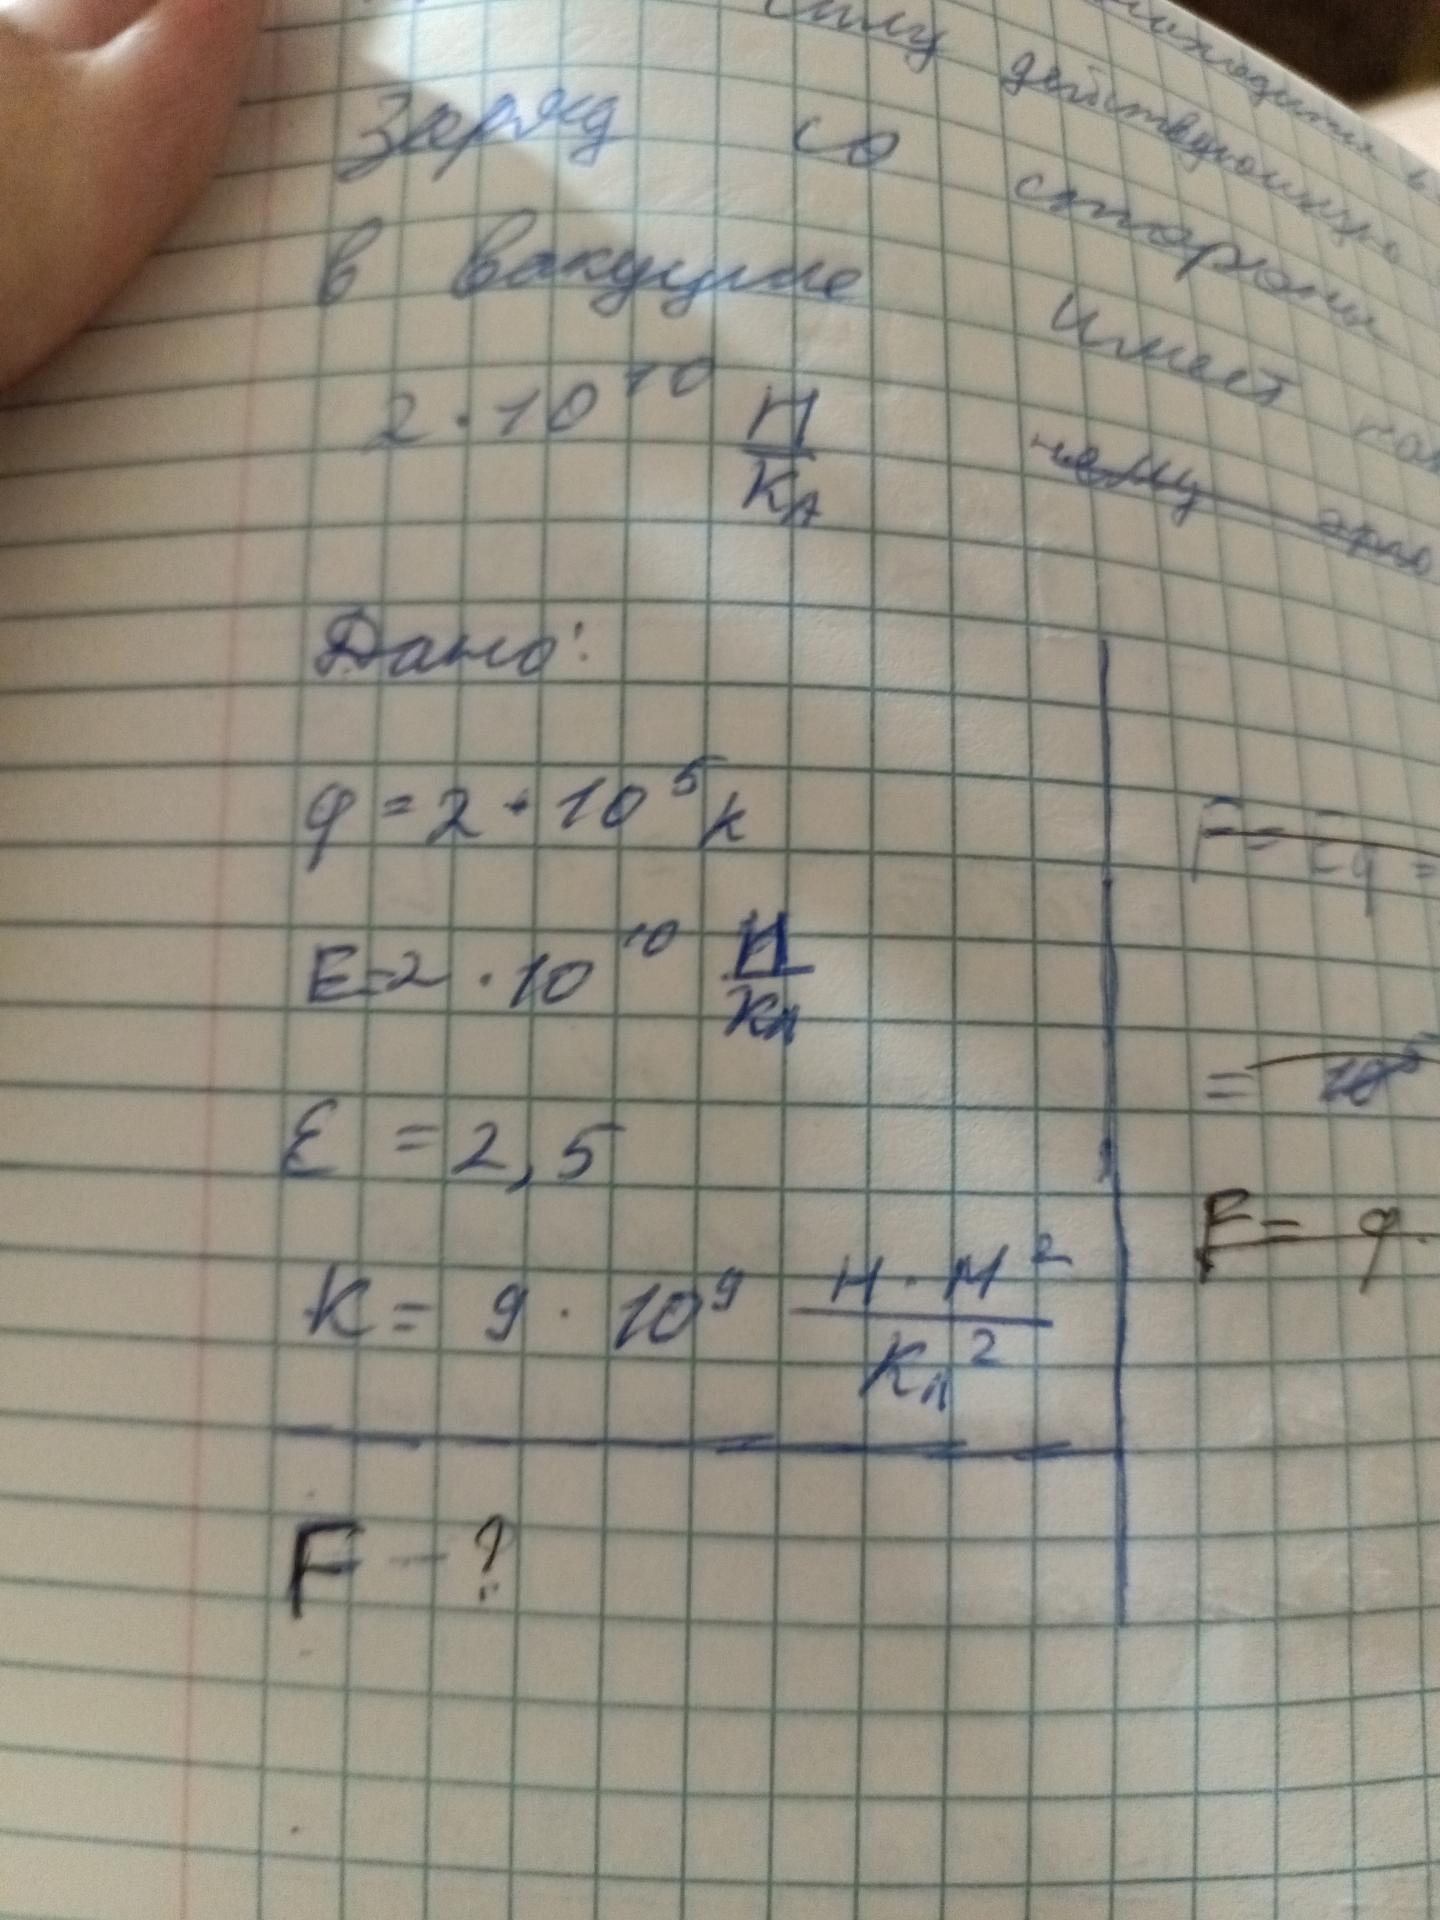 силу действующую
Заряд со стороны
в вакууме имеет
2 · 10^10 Н/Кл
Дано:
q = 2 · 10^5 К
E = 2 · 10^10 Н/Кл
ε = 2,5
K = 9 · 10^9 Н · М^2/Кл^2
F - ?
F = Eq =
= 10^5
F = q ·